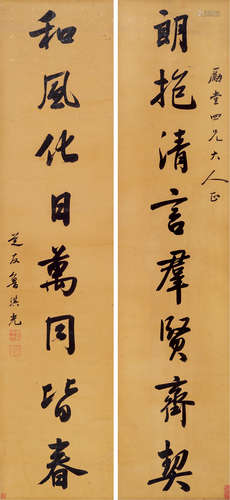 朗抱清言羣賢齊契
四兄大人正
和風化日萬同皆春
芝友魯琪光